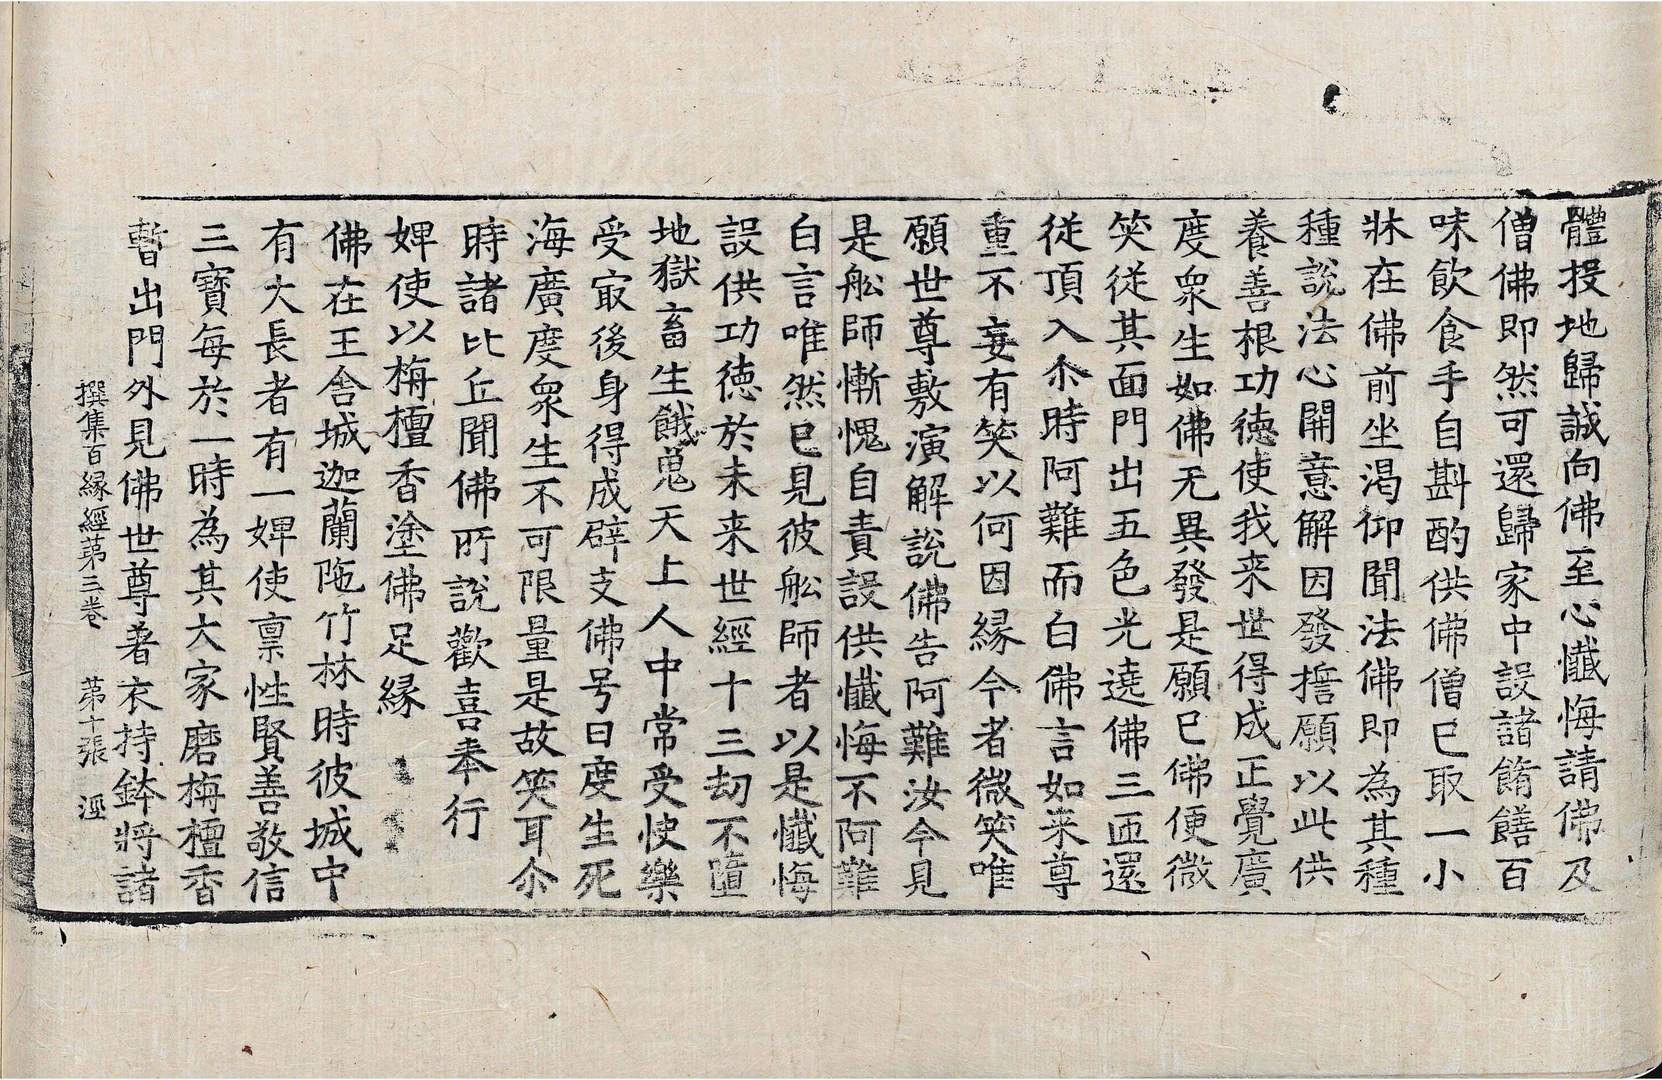 體投地歸誠向佛至心懺悔請佛及
僧佛即然可還歸家中設諸餚饍百
味飲食手自斟酌供佛僧已取一小
牀在佛前坐渴仰聞法佛即為其種
種說法心開意解因發誓願以此供
養善根功德使我来世得成正覺廣
度衆生如佛无異發是願已佛便微
笑從其面門出五色光遶佛三匝還
從頂入尒時阿難而白佛言如来尊
重不妄有笑以何因緣今者微笑唯
願世尊敷演解說佛告阿難汝今見
是舩師慚愧自責設供懺悔不阿難
白言唯然已見彼舩師者以是懺悔
設供功德於未来世經十三劫不墮
地獄畜生餓鬼天上人中常受快樂
受㝡後身得成辟支佛号曰度生死
海廣度衆生不可限量是故笑耳尒
時諸比丘聞佛所說歡喜奉行
婢使以栴檀香塗佛足緣
佛在王舍城迦蘭陁竹林時彼城中
有大長者有一婢使禀性賢善敬信
三寶每於一時為其大家磨栴檀香
暫出門外見佛世尊著衣持鉢將諸
撰集百緣經第三卷 第十張 淫